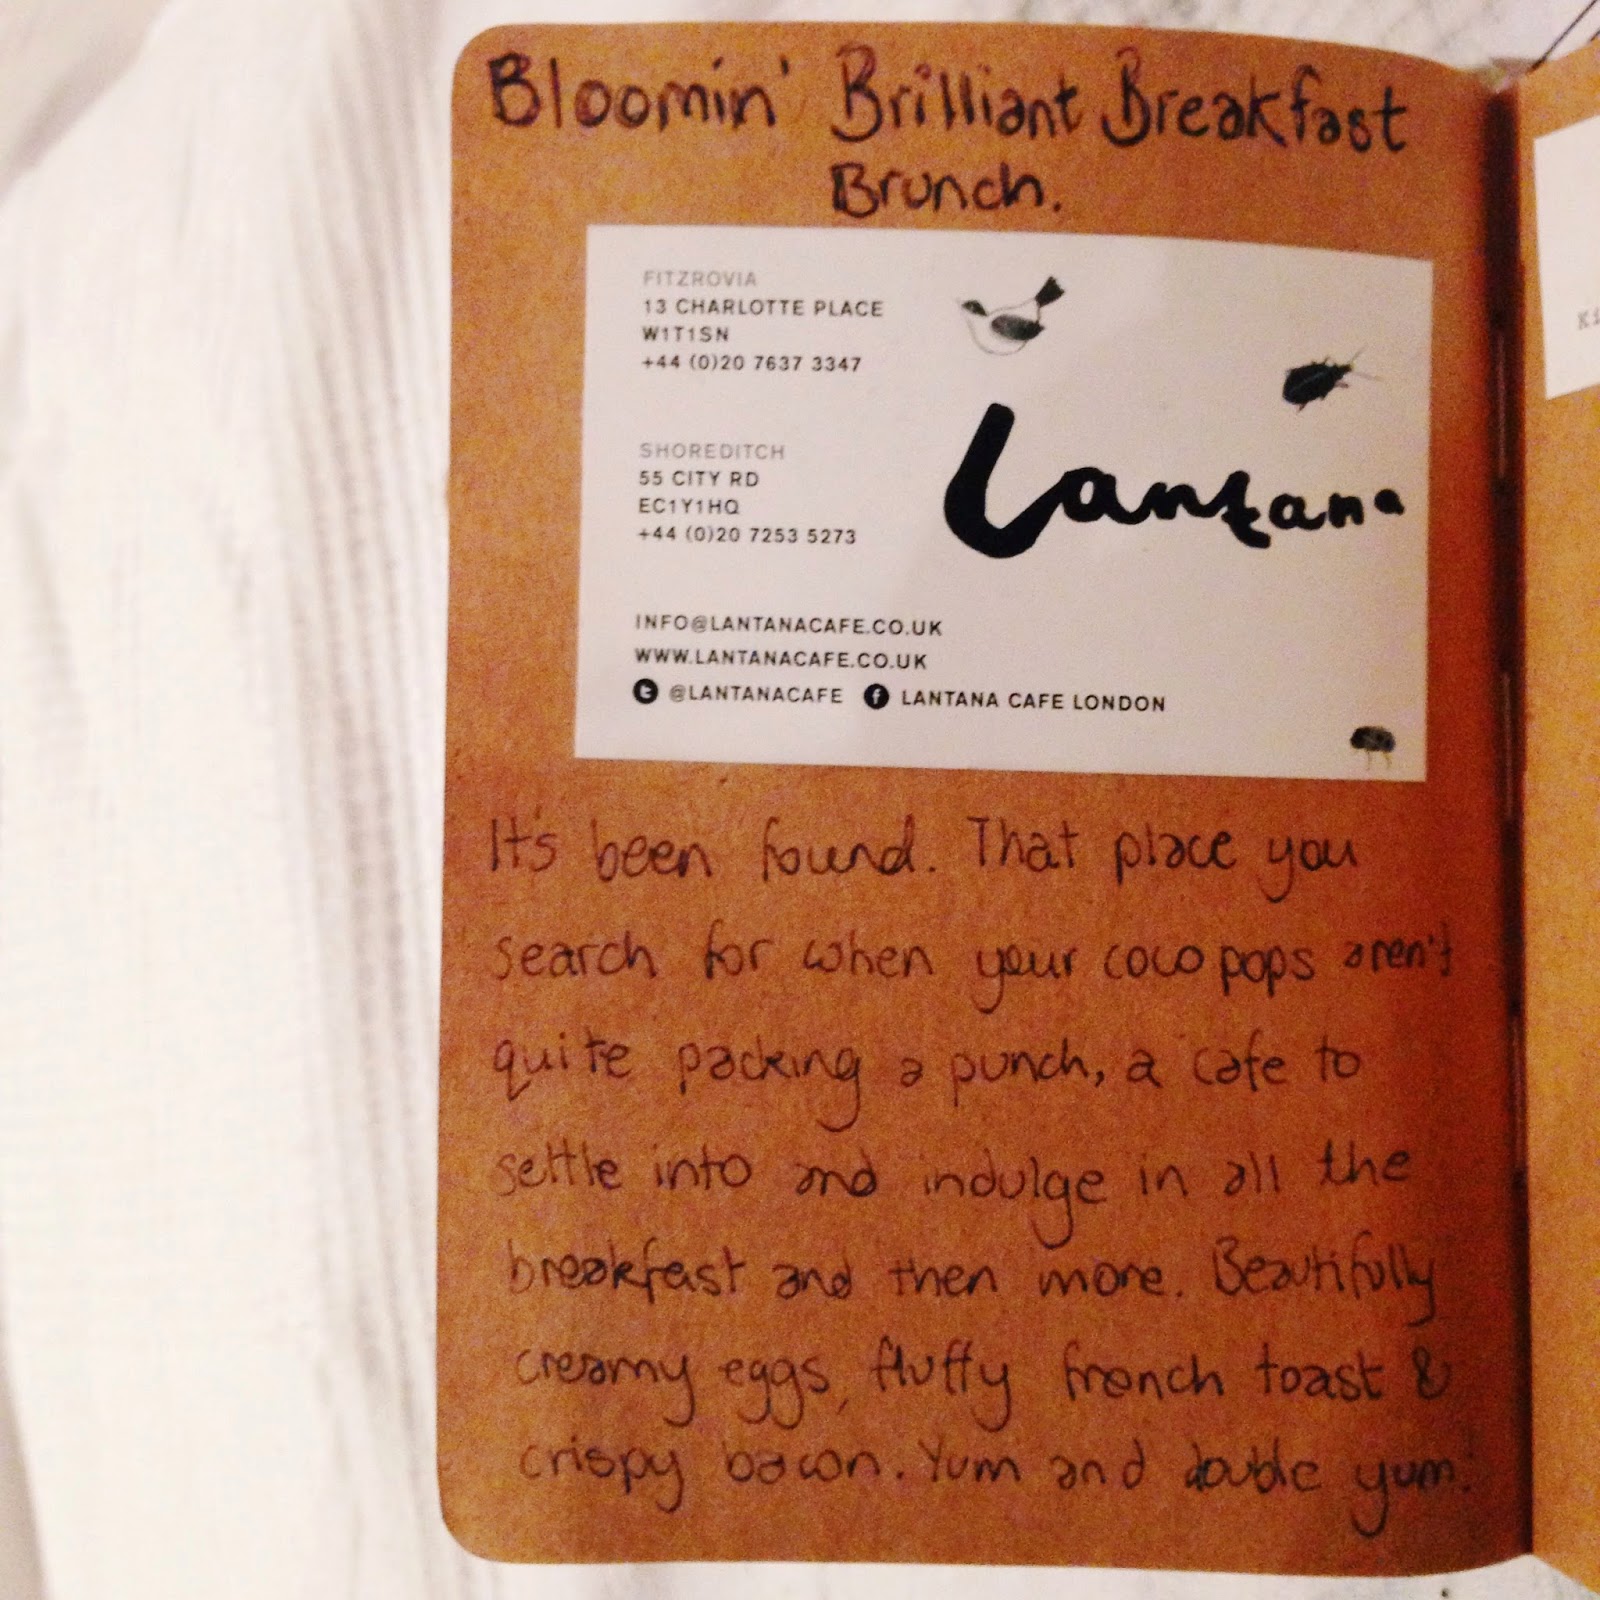 Bloomin' Brilliant Breakfast
Brunch.
FITZROVIA
13 CHARLOTTE PLACE
W1T1SN
+44 (0)20 7637 3347
SHOREDITCH
55 CITY RD
EC1Y1HQ
+44 (0)20 7253 5273
Lantana
INFO@LANTANACAFE.CO.UK
WWW.LANTANACAFE.CO.UK
@LANTANACAFE LANTANA CAFE LONDON
It's been found. That place you
search for when your coco pops aren't
quite packing a punch, a cafe to
settle into and indulge in all the
breakfast and then more. Beautifully
creamy eggs, fluffy french toast &
crispy bacon. Yum and double yum!